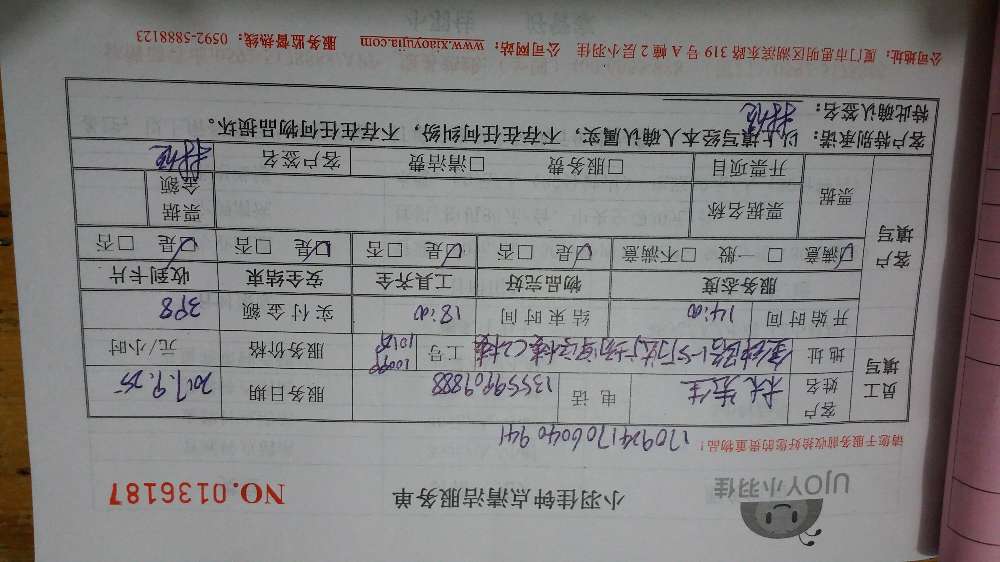 UJOY小羽佳
小羽佳钟点清洁服务单
NO.0136187
请您于服务前收拾好您的贵重物品！
1709241706040941
员工填写
客户姓名
林先生
电话
13559909888
服务日期
2017.9.25
地址
工号
服务价格
元/小时
开始时间
14:00
结束时间
18:00
实付金额
398
客户填写
服务态度
物品完好
工具齐全
安全结束
收到卡片
☑满意 □一般 □不满意
☑是 □否
☑是 □否
☑是 □否
☑是 □否
票据
票据名称
票据金额
开票项目
□服务费 □清洁费
客户签名
客户特别承诺：以上填写经本人确认属实，不存在任何纠纷，不存在任何物品损坏。
特此确认签名：
公司地址：厦门市思明区湖滨东路319号A幢2层小羽佳 公司网站：www.xiaoyujia.com 服务监督热线：0592-5888123